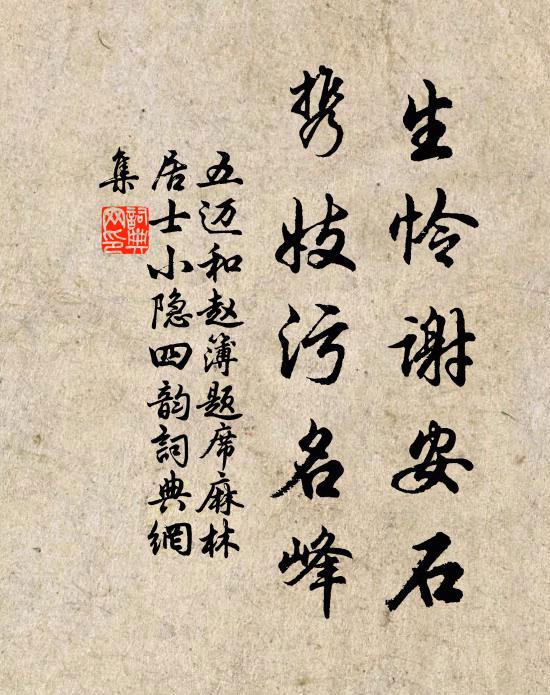 生怜谢安石
携妓污名峰
五迈和赵簿题席麻林
居士小隐四韵詞典網
集
詞典
网印